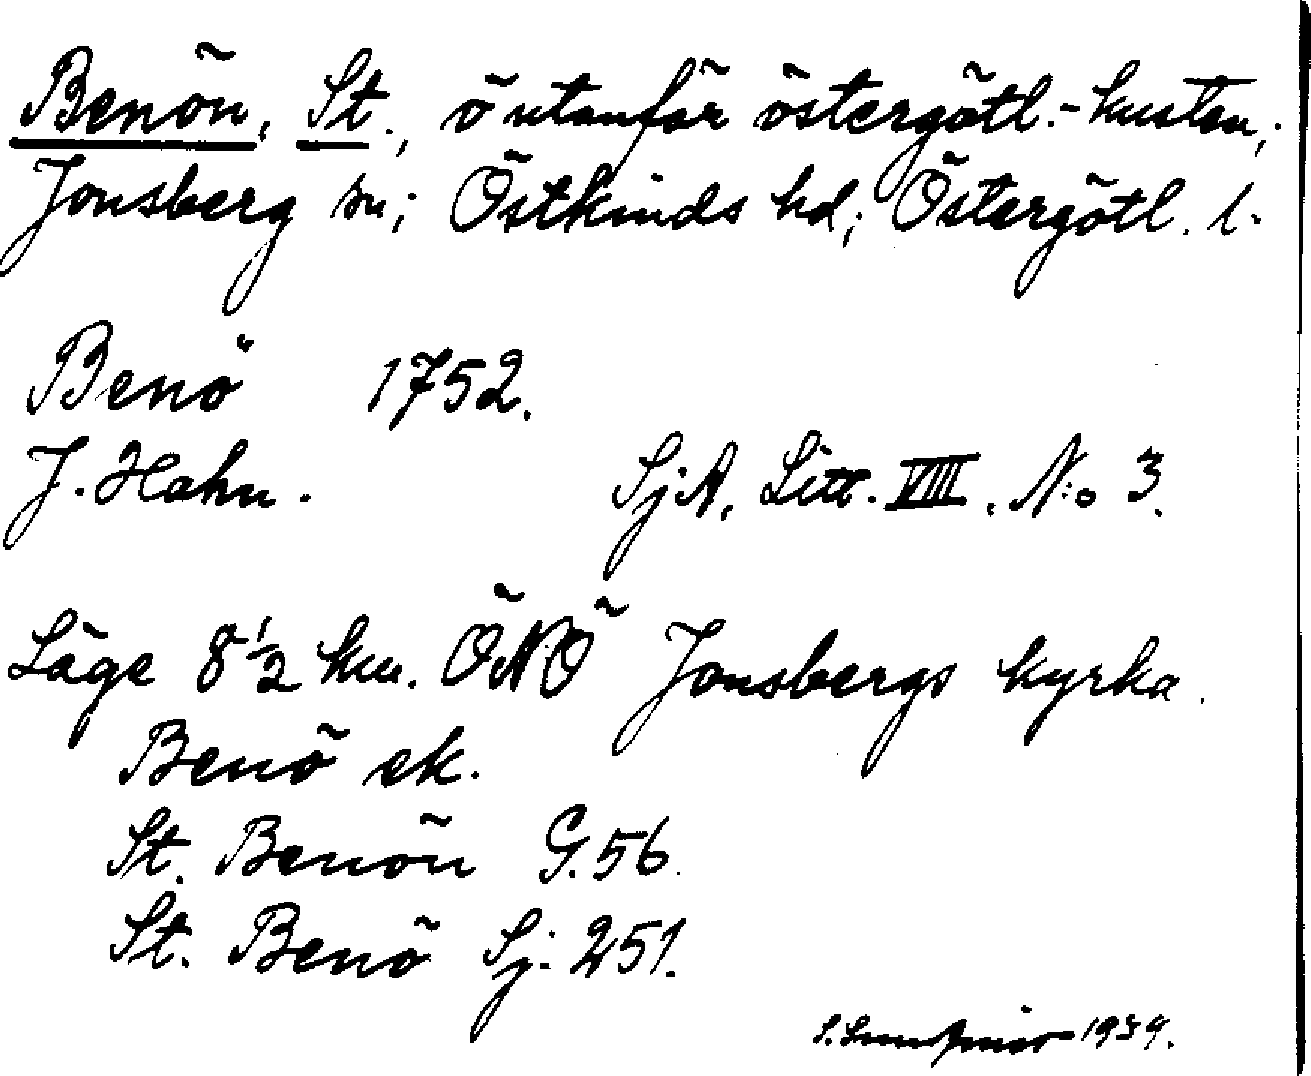 Benön, St., ö utanför östergötl.-kusten,
Jonsberg sn; Östkinds hd; Östergötl. l.
Benö 1752.
J. Hahn. SjA, Litt. VIII. N:o 3.
Läge 8 1/2 km. ÖNÖ Jonsbergs kyrka.
Benö ek.
St. Benön G. 56.
St. Benö Sj. 251.
1939.